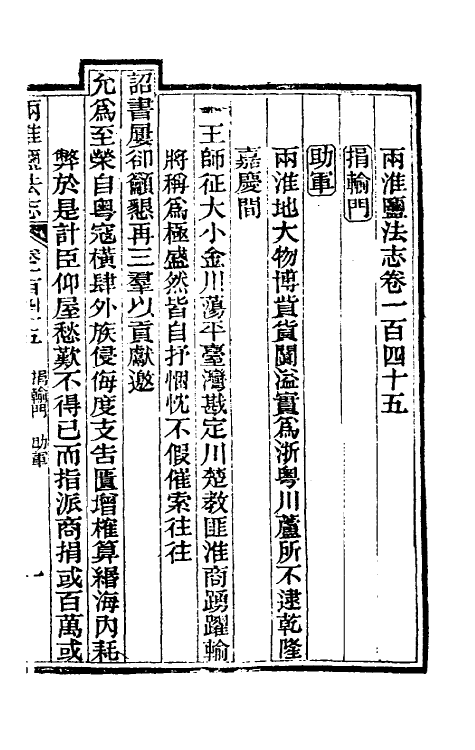 兩淮鹽法志卷一百四十五
捐輸門
助軍
兩淮地大物博貲貨闐溢實爲浙粵川蘆所不逮乾隆
嘉慶間
王師征大小金川蕩平臺灣戡定川楚教匪淮商踴躍輸
將稱爲極盛然皆自抒悃忱不假催索往往
詔書屢卻籲懇再三羣以貢獻邀
允爲至榮自粵寇橫肆外族侵侮度支告匱增榷算緡海內耗
弊於是計臣仰屋愁歎不得已而指派商捐或百萬或
兩淮鹽法志 卷一百四十五 捐輸門 助軍 一